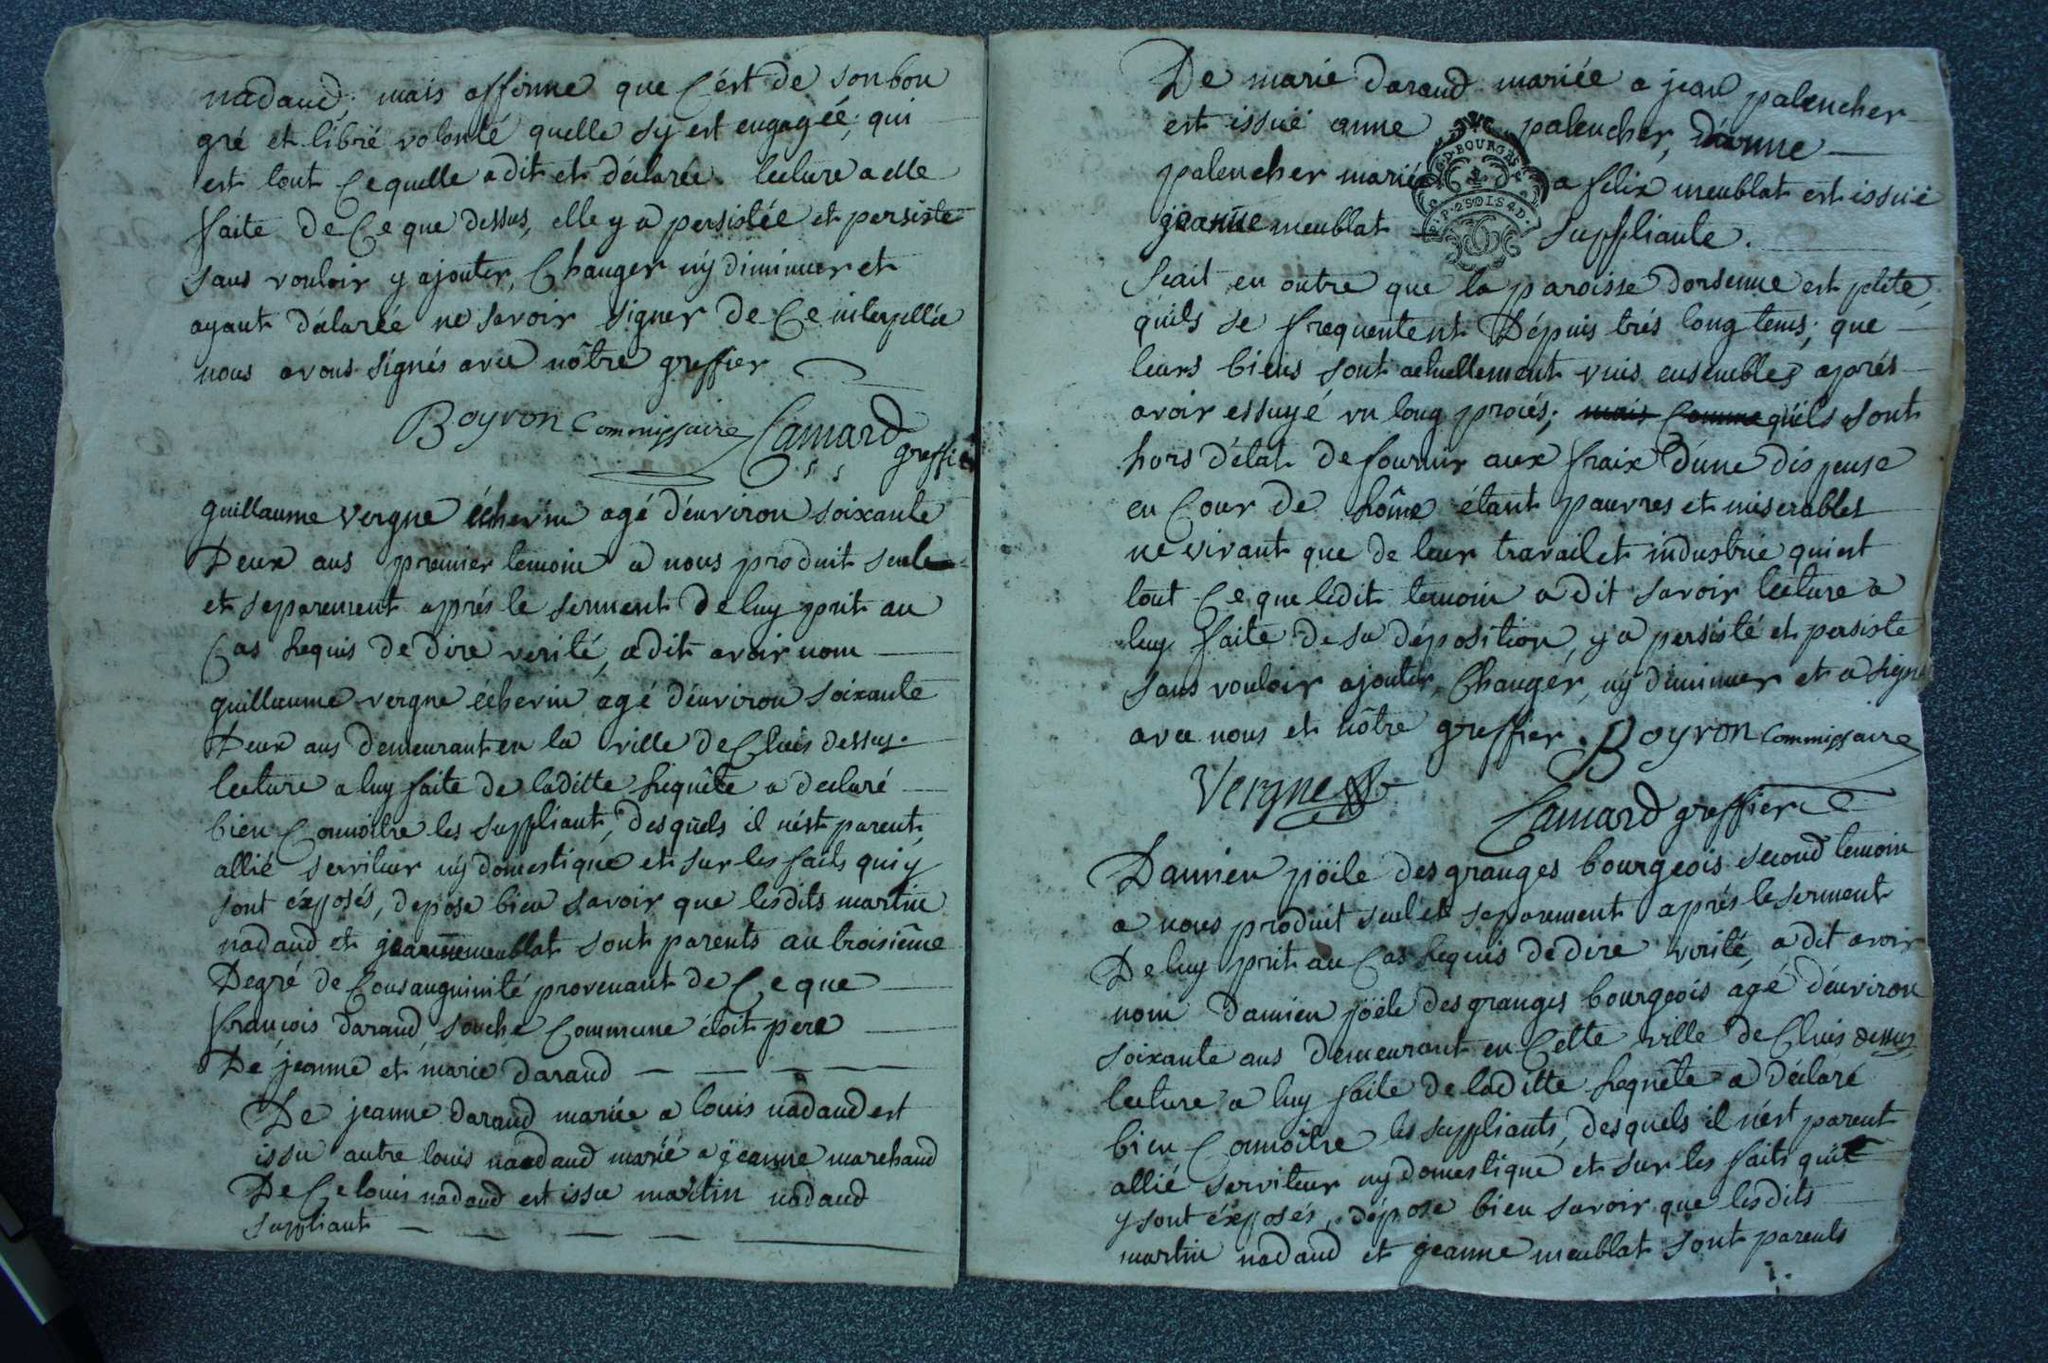 nadaud. mais affirme que c'ést de son bon
gré et libré volonté quelle sy est engagéé, qui
est tout Ce quelle a dit et déclarée. lecture a elle
faite de Ce que dessus, elle y a persistéé et persiste
sans vouloir y ajouter, Changer ny diminuer et
ayant déclaréé ne savoir signer de Ce interpellée
nous avons signés avec nôtre greffier
Boyron Commissaire Camard
greffier
guillaume vergne écherin agé d'environ soixante
Deux ans premier temoin a nous produit seule
et separement aprés le serment de luy prit au
Cas requis de dire verité, a dit avoir nom
guillaume vergne écherin agé d'environ soixante
Deux ans demeurant en la ville de Cluis dessus.
lecture a luy faite de laditte requête a declaré
bien Connoitre les suppliant, desquels il nést parent,
allié serviteur ny domestique et sur les faits qui y
sont éxposés, depose bien savoir que lesdits martin
nadaud et jeanne meublat sont parents au troisiême
Degré de Consanguinité provenant de Ce que
françois daraud, souche Commune étoit pere
De jeanne et marie daraud
De jeanne daraud mariée a louis nadaud est
issu autre louis nadaud marié a jeanne marchaud
De Ce louis nadaud est issu martin nadaud
suppliant
De marie daraud mariée a jean palencher
est issuë anne palencher, D'anne
palencher mariée a felix meublat est issuë
jeanne meublat suppliante.
G. D. BOURGES
P. P. 2 SOLS 4 D.
scait en outre que la paroisse dorsenne est petite,
qu'ils se frequentent Dépuis trés long tems, que
leurs biens sont actuellement unis ensembles aprés
avoir essuyé un long procés; mais Comme qu'ils sont
hors d'état de fournir aux fraix d'une dispense
en Cour de Rôme étant pauvres et miserables
ne vivant que de leur travail et industrie qui est
tout Ce que ledit temoin a dit savoir lecture a
luy faite de sa déposition, y a persisté et persiste
sans vouloir ajouter, Changér, ny diminuer et a signé
avec nous et nôtre greffier. Boyron Commissaire
Vergne
Camard greffier
Damien jöile desgranges bourgeois second temoin
a nous produit seul et separement aprés le serment
De luy prit au Cas requis de dire verité, a dit avoir
nom damien jöële desgranges bourgeois agé d'environ
soixante ans demeurant en Cette ville de Cluis dessus,
lecture a luy faite de laditte requête a déclaré
bien Connoitre les suppliants, desquels il n'ést parent
allié serviteur ny domestique et sur les faits qui
y sont éxposés, dépose bien savoir que lesdits
martin nadaud et jeanne meublat sont parents